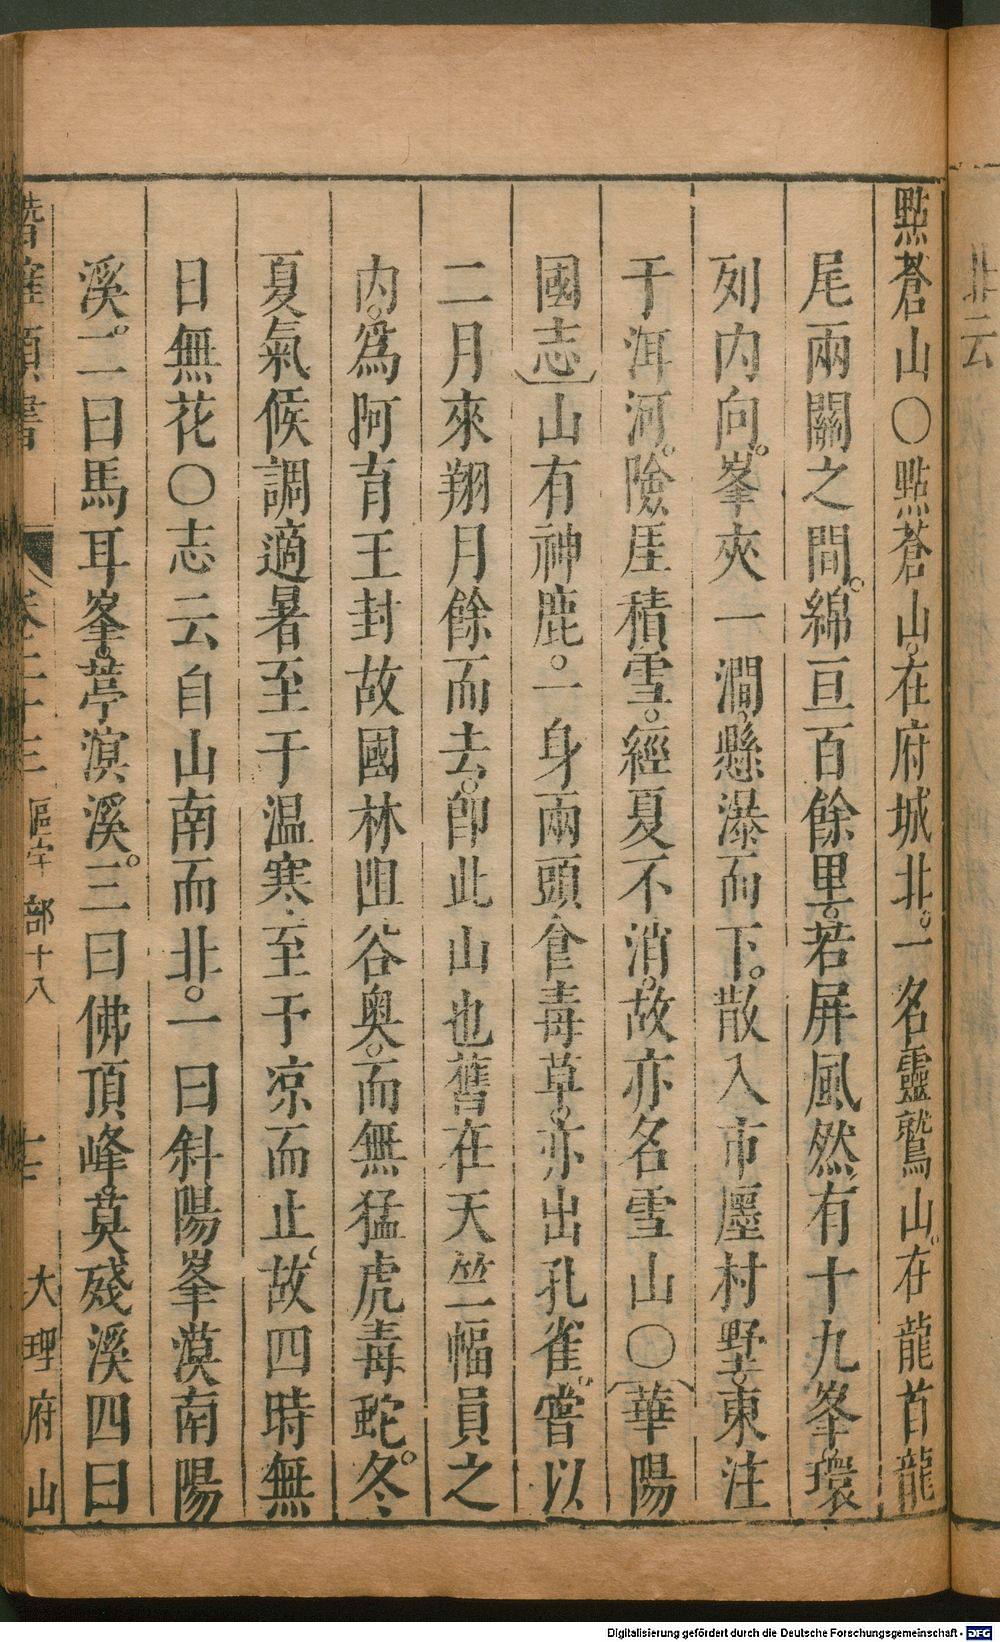 點蒼山○點蒼山。在府城北。一名靈鷲山。在龍首龍
尾兩關之間。綿亘百餘里。若屏風然有十九峯環
列内向。峯夾一澗。懸瀑而下。散入市廛村墅。東注
于洱河。險厓積雪。經夏不消。故亦名雪山○華陽
國志山有神鹿。一身兩頭食毒草。亦出孔雀。嘗以
二月來翔月餘而去。卽此山也舊在天竺幅員之
内。爲阿育王封故國林岨谷奥。而無猛虎毒蛇。冬
夏氣候調適暑至于温寒至于凉而止故四時無
日無花○志云自山南而北。一曰斜陽峯漠南陽
溪。二曰馬耳峯。葶溟溪。三曰佛頂峰。莫殘溪四曰
類書 卷二十三 區宇部十八 大理府山
北云
Digitalisierung gefördert durch die Deutsche Forschungsgemeinschaft - DFG